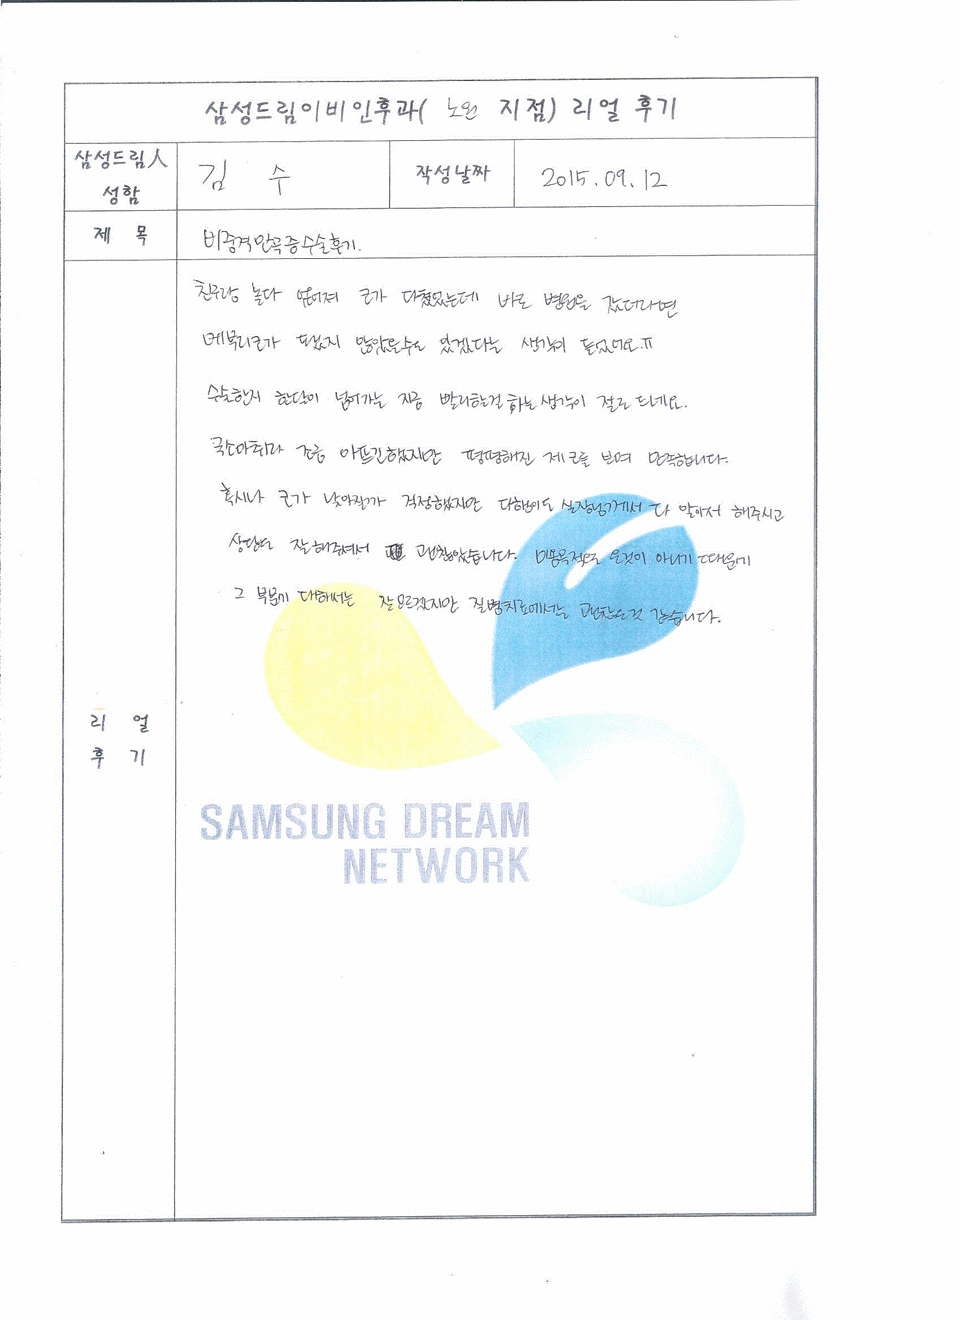 삼성드림이비인후과( 노원 지점) 리얼 후기
삼성드림人 성함
김 수
작성날짜
2015.09.12
제 목
비중격만곡증수술후기.
친구랑 놀다 엎어져 코가 다쳤었는데 바로 병원을 갔더라면
메부리코가 되지 않았을수도 있겠다는 생각이 들었어요.ㅠ
수술한지 한달이 넘어가는 지금 빨리할걸 하는 생각이 절로 드네요.
국소마취라 조금 아프긴했지만 평평해진 제 코를 보며 만족합니다.
혹시나 코가 낮아질까 걱정했지만 다행이도 실장님께서 다 알아서 해주시고
상담도 잘해주셔서 괜찮았습니다. 미용목적으로 온것이 아니기 때문에
그 부분에 대해서는 잘모르겠지만 질병치료에서는 괜찮은것 같습니다.
리 얼
후 기
SAMSUNG DREAM
NETWORK